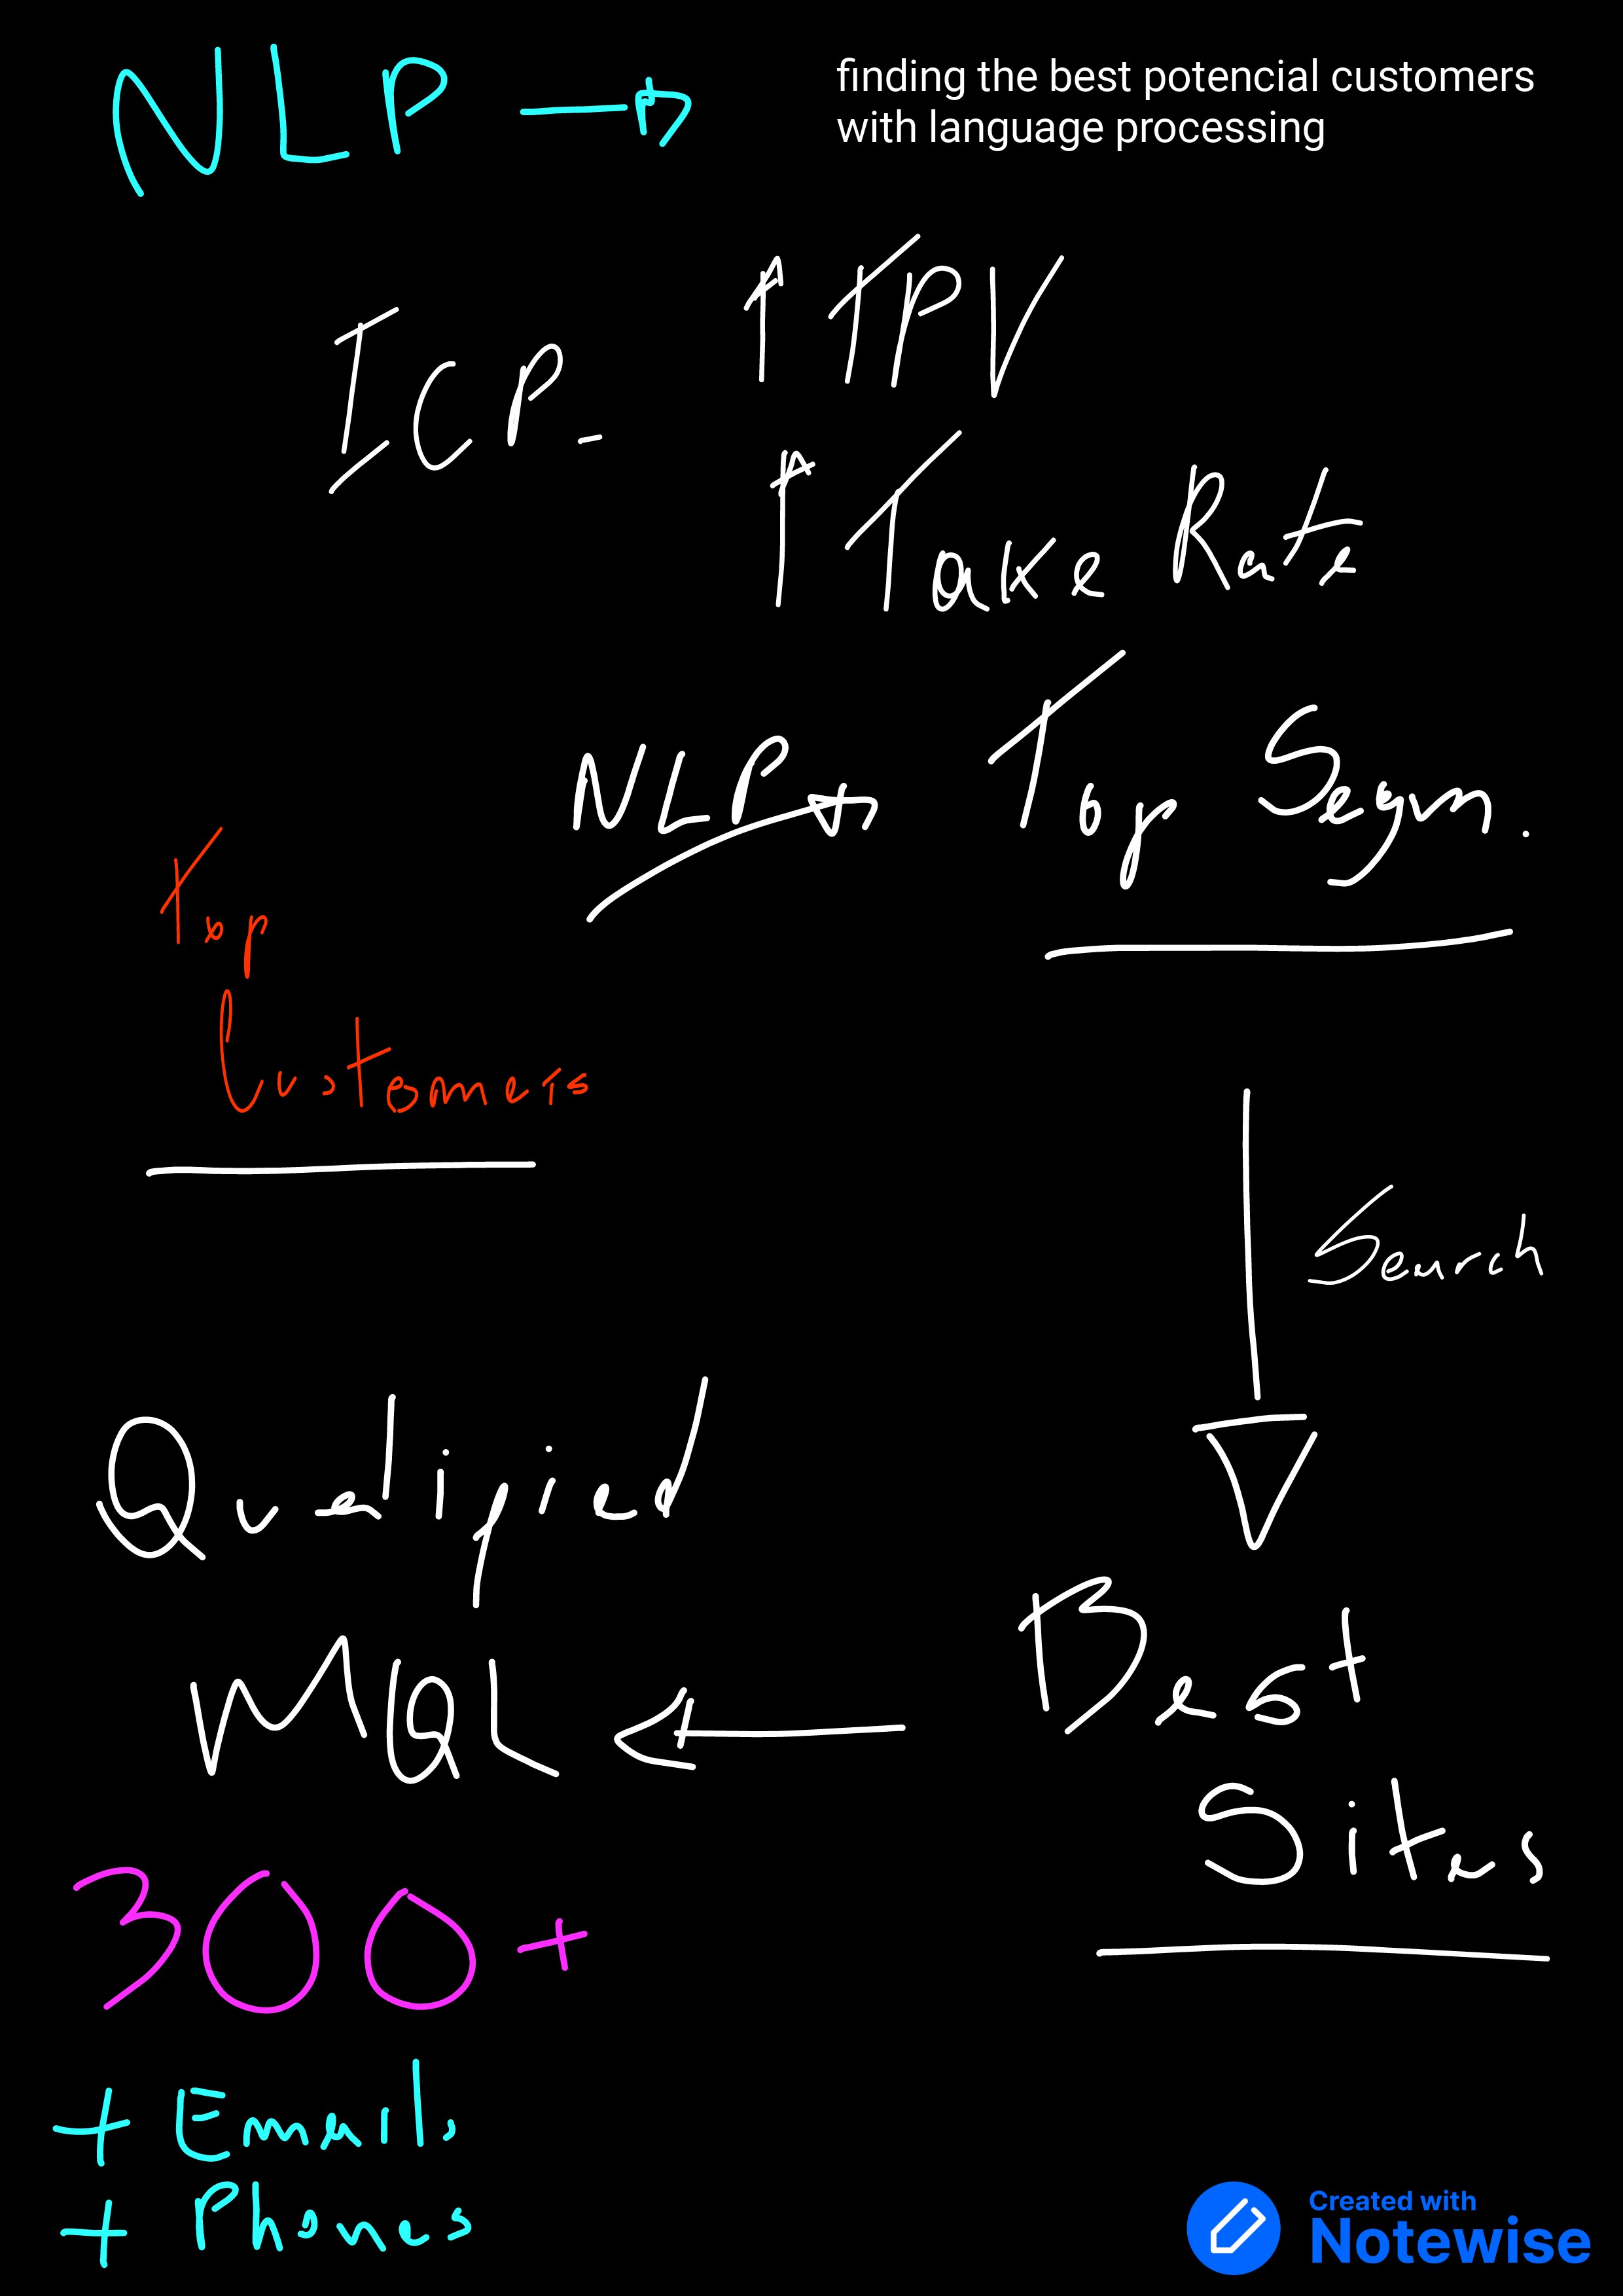 NLP →
finding the best potencial customers
with language processing
ICP -
↑ TPV
↑ Take Rate
NLP → Top Segm.
Top
Customers
Search
Qualified
MQL ←
Best
Sites
300+
+ Emails
+ Phones
Created with
Notewise